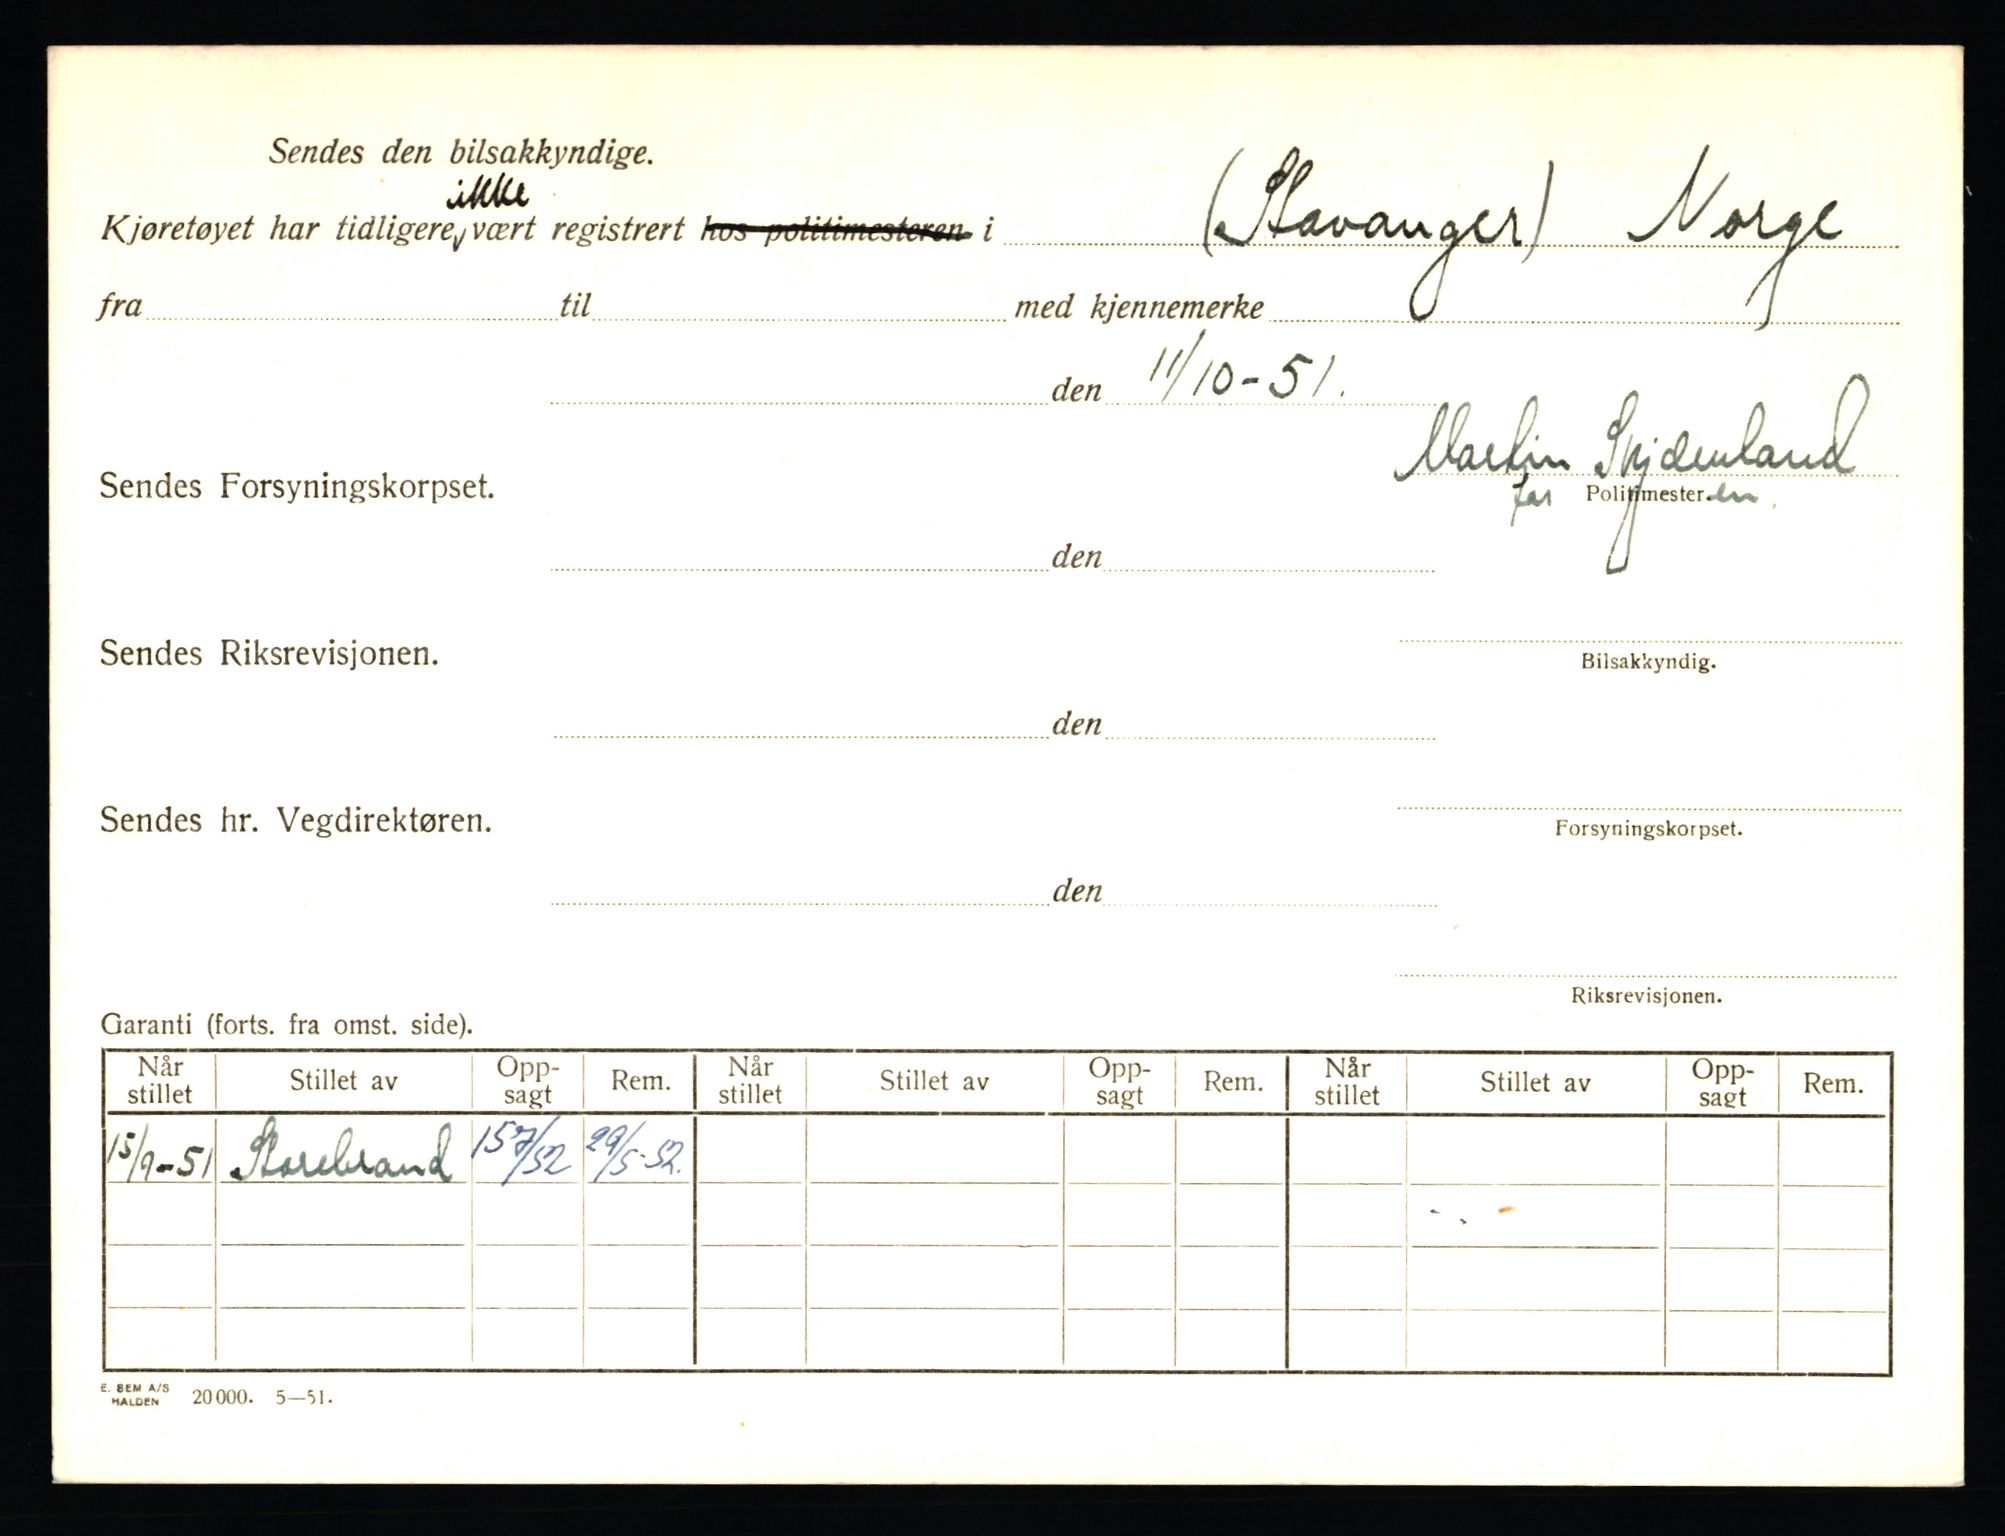 Sendes den bilsakkyndige.
ikke
Kjøretøyet har tidligere, vært registrert hos politimesteren i (Stavanger) Norge
fra til med kjennemerke
den 11/10-51.
Martin Skjdenland
Sendes Forsyningskorpset.
for Politimester en.
den
Sendes Riksrevisjonen.
Bilsakkyndig.
den
Sendes hr. Vegdirektøren.
Forsyningskorpset.
den
Riksrevisjonen.
Garanti (forts. fra omst. side).
Når stillet Stillet av Opp-sagt Rem. Når stillet Stillet av Opp-sagt Rem. Når stillet Stillet av Opp-sagt Rem.
15/9-51 Storebrand 15 7/52 29/5-52.
E. BEM A/S
HALDEN 20000. 5—51.